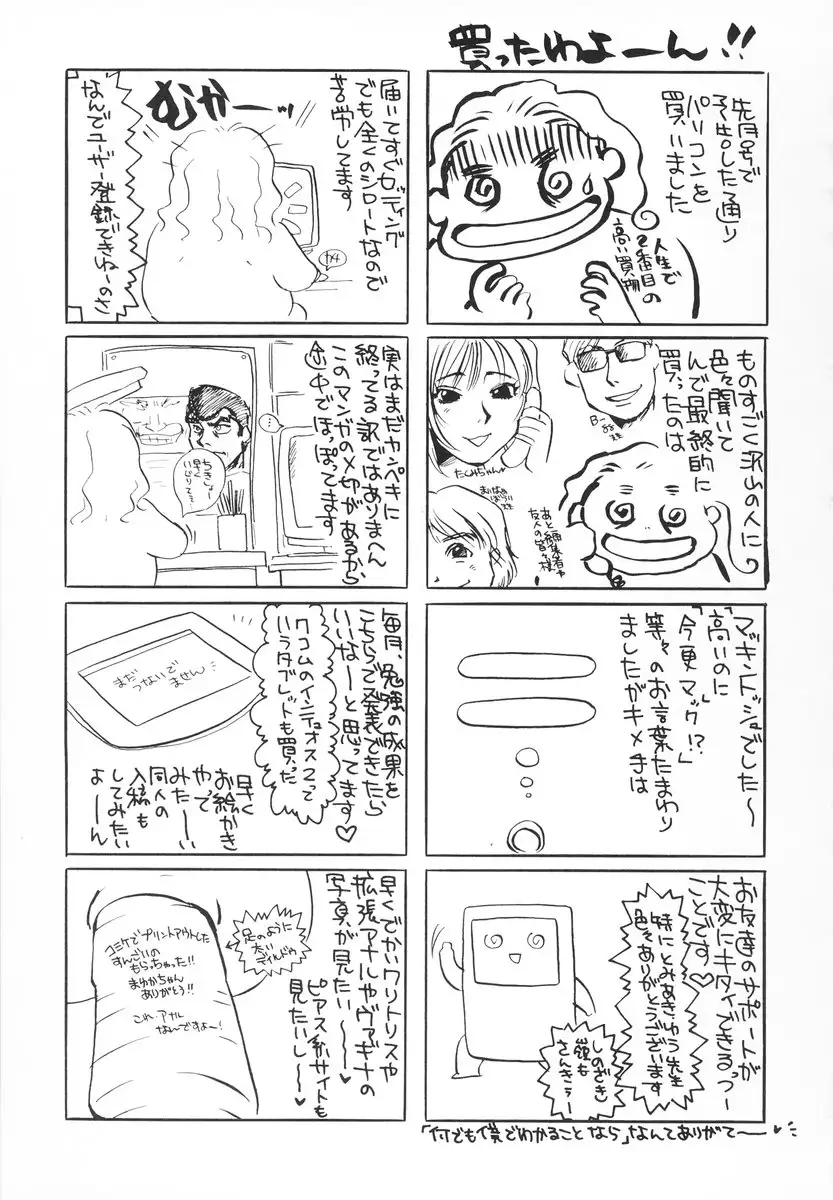 買ったわよーん!!
先月号で
予告した通り
パソコンを
買いました
人生で
2番目の
高い買物
ものすごく沢山の人に
色々聞いて
んで最終的に
買ったのは
B-
たくみちゃん
あと編集者や
友人の皆々様
マッキントッシュでした〜
高いのに
「今更マック!?」
等々のお言葉たまわり
ましたがキメ手は
お友達のサポートが
大変にキタイできるっつー
ことです♡
特にとみあき・ゆう先生
色々ありがとうございます
しのざき
嶺も
さんきゅー
「何でも僕でわかることなら」なんてありがてーー♥
届いてすぐセッティング
でも全くのシロートなので
苦労してます
むかーーッ
カチ
なんでユーザー登録できねーのさ
実はまだカンペキに
終ってる訳ではありまへん
このマンガの〆切があるから
途中でほっぽってます
ちきしょー
早く
いじりてー
毎月、勉強の成果を
こちらで発表できたら
いいなーと思ってます♡
ワコムのインテュオス2って
いうタブレットも買った
まだ
つないで
ません
早く
お絵かき
やって
みた〜い
同人の
入稿も
してみたい
よーん
早くでかいクリトリスや
拡張アナルやヴァギナの
写真が見たい〜〜♥
ピアス系サイトも
見たいし〜♥
足のように
太い
ディルドゥ
コミケでプリントアウトした
すんごいの
もらっちゃった!!
まゆかちゃん
ありがとう!!
これ、アナル
なんですよ〜!